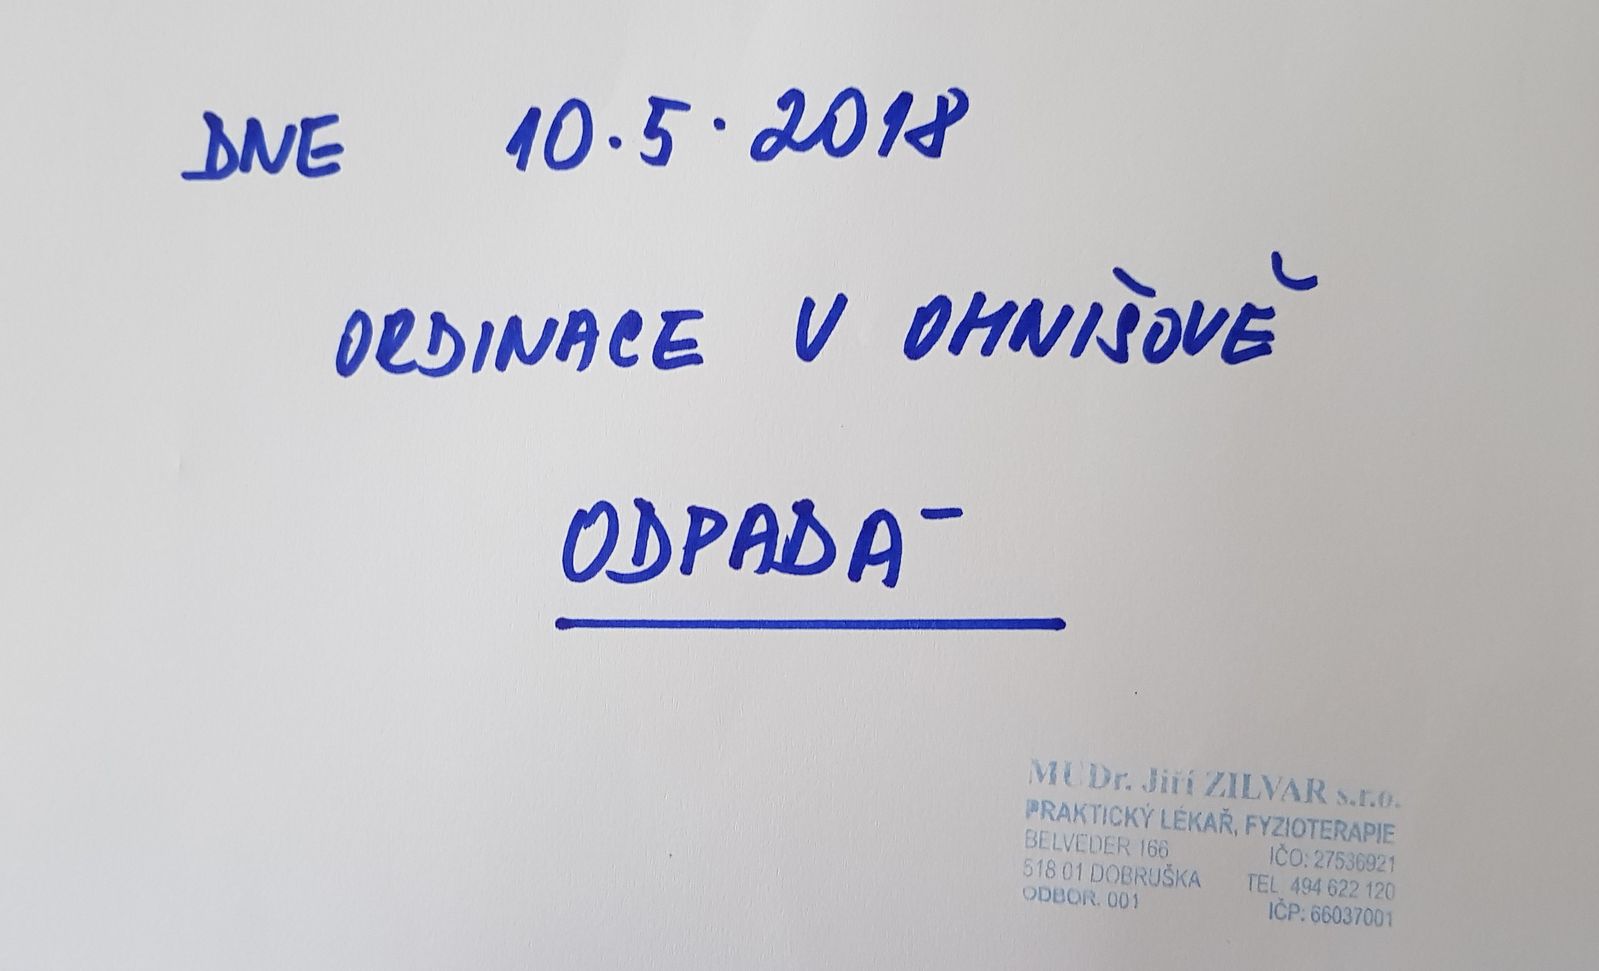 DNE 10.5.2018
ORDINACE V OHNIŠOVĚ
ODPADÁ
MUDr. Jiří ZILVAR s.r.o.
PRAKTICKÝ LÉKAŘ, FYZIOTERAPIE
BELVEDER 166 IČO: 27536921
518 01 DOBRUŠKA TEL. 494 622 120
ODBOR. 001 IČP: 66037001